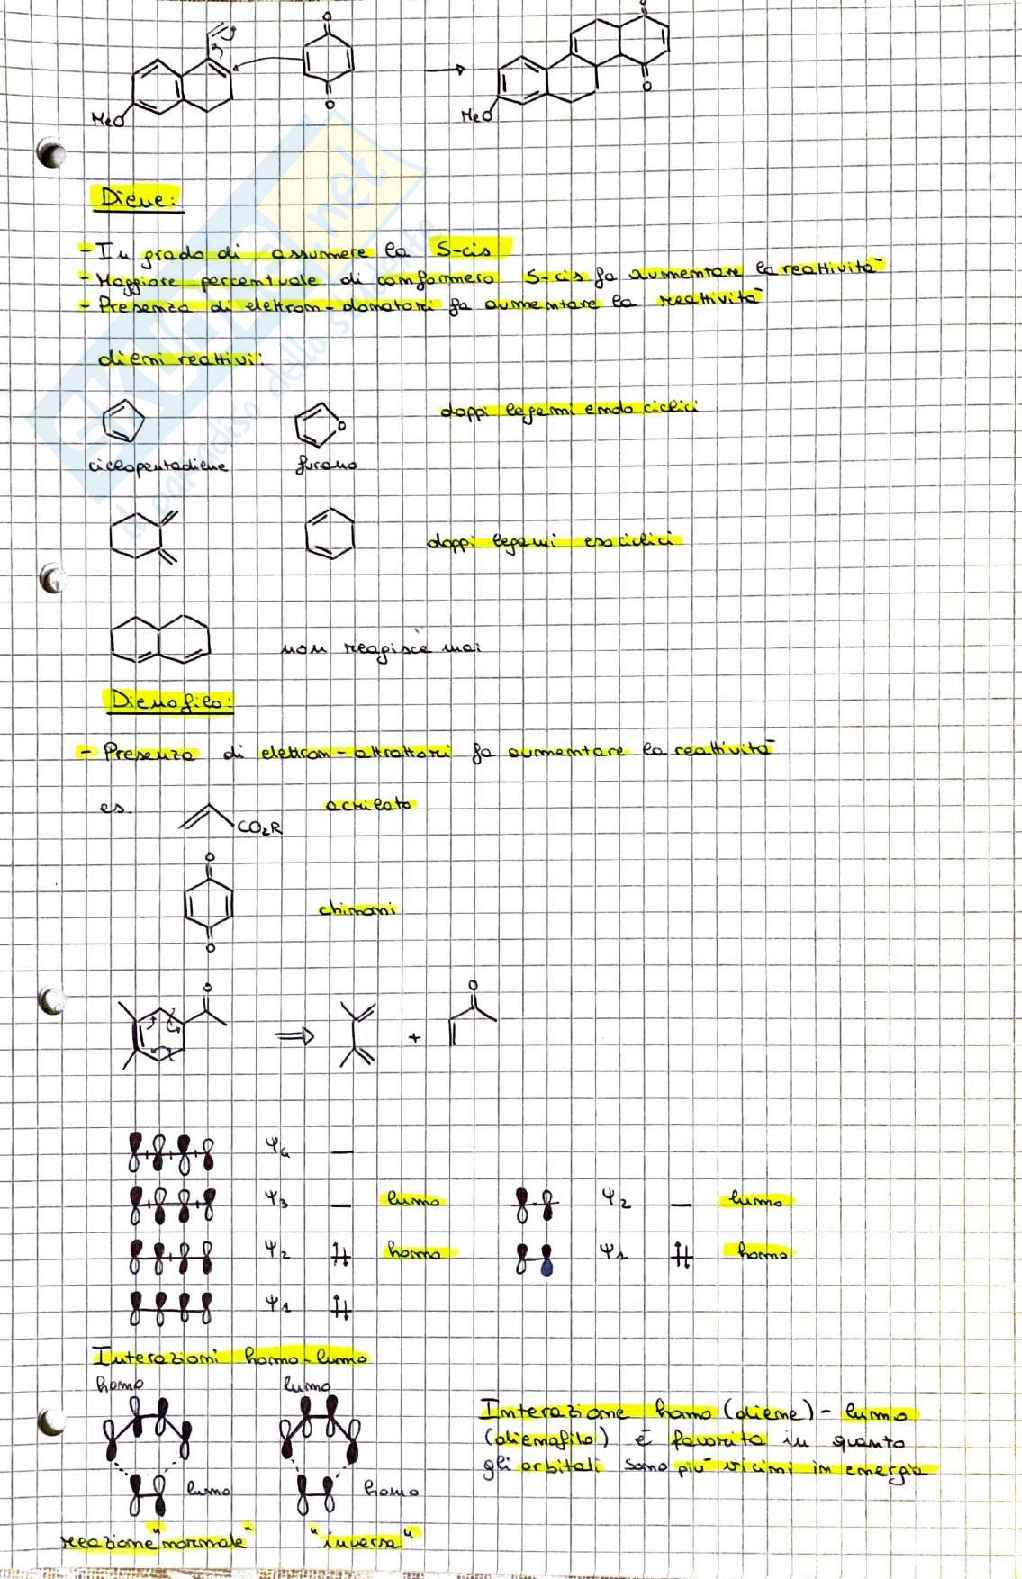 O
O
O
O
MeO
MeO
Diene:
- In grado di assumere la S-cis
- Maggiore percentuale di conformero S-cis fa aumentare la reattività
- Presenza di elettron-donatori fa aumentare la reattività
dieni reattivi:
doppi legami endo ciclici
O
ciclopentadiene furano
doppi legami esociclici
non reagisce mai
Dienofilo:
- Presenza di elettron-attrattori fa aumentare la reattività
es. CO2R acrilato
O
chinoni
O
O O
⇒ +
Ψ4 —
Ψ3 — lumo Ψ2 — lumo
Ψ2 homo Ψ1 homo
Ψ1
Interazioni homo-lumo
homo lumo
Interazione homo (diene) - lumo
(dienofilo) è favorita in quanto
gli orbitali sono più vicini in energia
lumo homo
reazione "normale" "inversa"